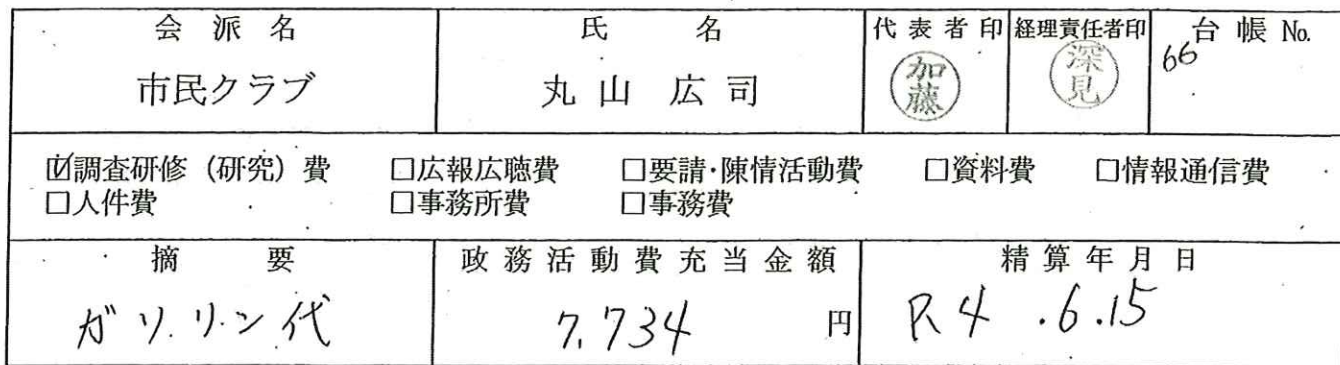 会派名 氏名 代表者印 経理責任者印 台帳 No.
市民クラブ 丸山 広司 加藤 深見 66
☑調査研修(研究)費 □広報広聴費 □要請・陳情活動費 □資料費 □情報通信費
□人件費 □事務所費 □事務費
摘要 政務活動費充当金額 精算年月日
ガソリン代 7,734 円 R4.6.15